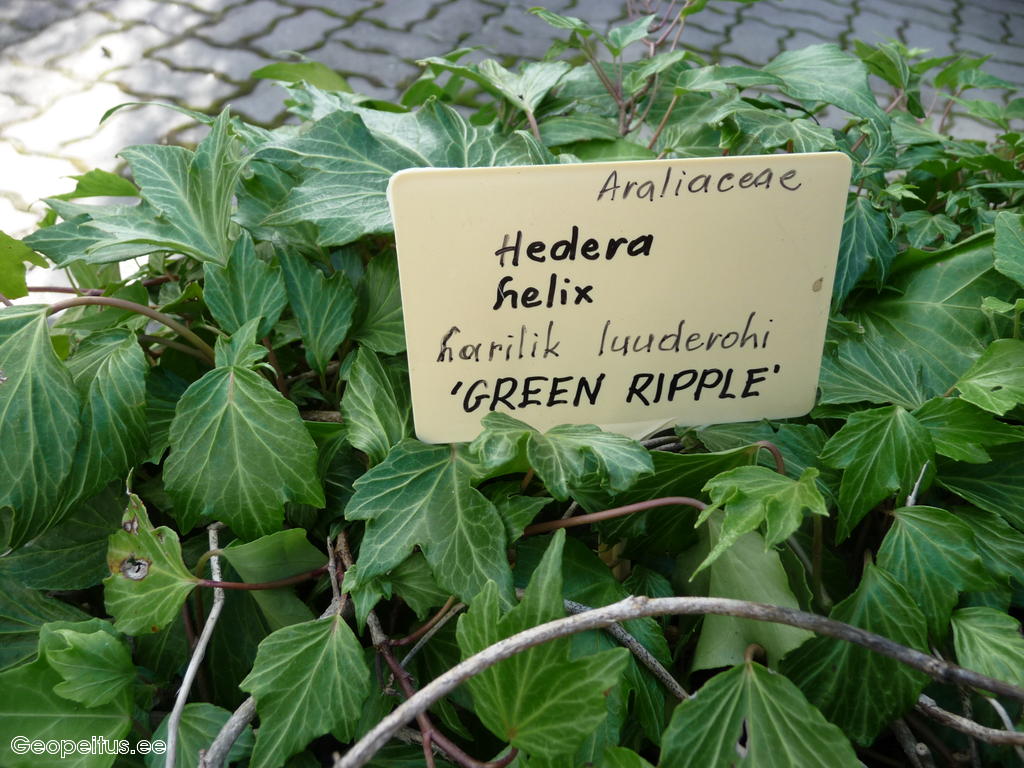 Araliaceae
Hedera
helix
harilik luuderohi
'GREEN RIPPLE'
Geopeitus.ee